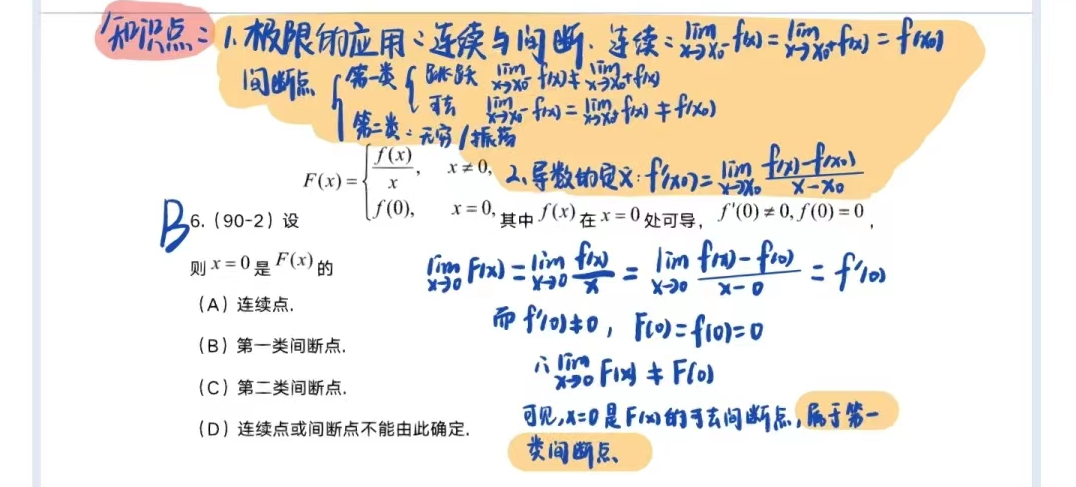 知识点：1.极限的应用：连续与间断. 连续：lim x→x₀⁻ f(x)=lim x→x₀⁺ f(x)=f(x₀)
间断点 { 第一类 { 跳跃 lim x→x₀⁻ f(x)≠lim x→x₀⁺ f(x)
可去 lim x→x₀⁻ f(x)=lim x→x₀⁺ f(x)≠f(x₀)
第二类：无穷/振荡
2、导数的定义：f'(x₀)=lim x→x₀ (f(x)-f(x₀))/(x-x₀)
B 6.（90-2）设 F(x)={ f(x)/x, x≠0, f(0), x=0, 其中 f(x) 在 x=0 处可导， f'(0)≠0, f(0)=0 ，
则 x=0 是 F(x) 的
（A）连续点.
（B）第一类间断点.
（C）第二类间断点.
（D）连续点或间断点不能由此确定.
lim x→0 F(x)=lim x→0 f(x)/x = lim x→0 (f(x)-f(0))/(x-0) = f'(0)
而 f'(0)≠0， F(0)=f(0)=0
∴ lim x→0 F(x)≠F(0)
可见,x=0是F(x)的可去间断点,属于第一
类间断点、